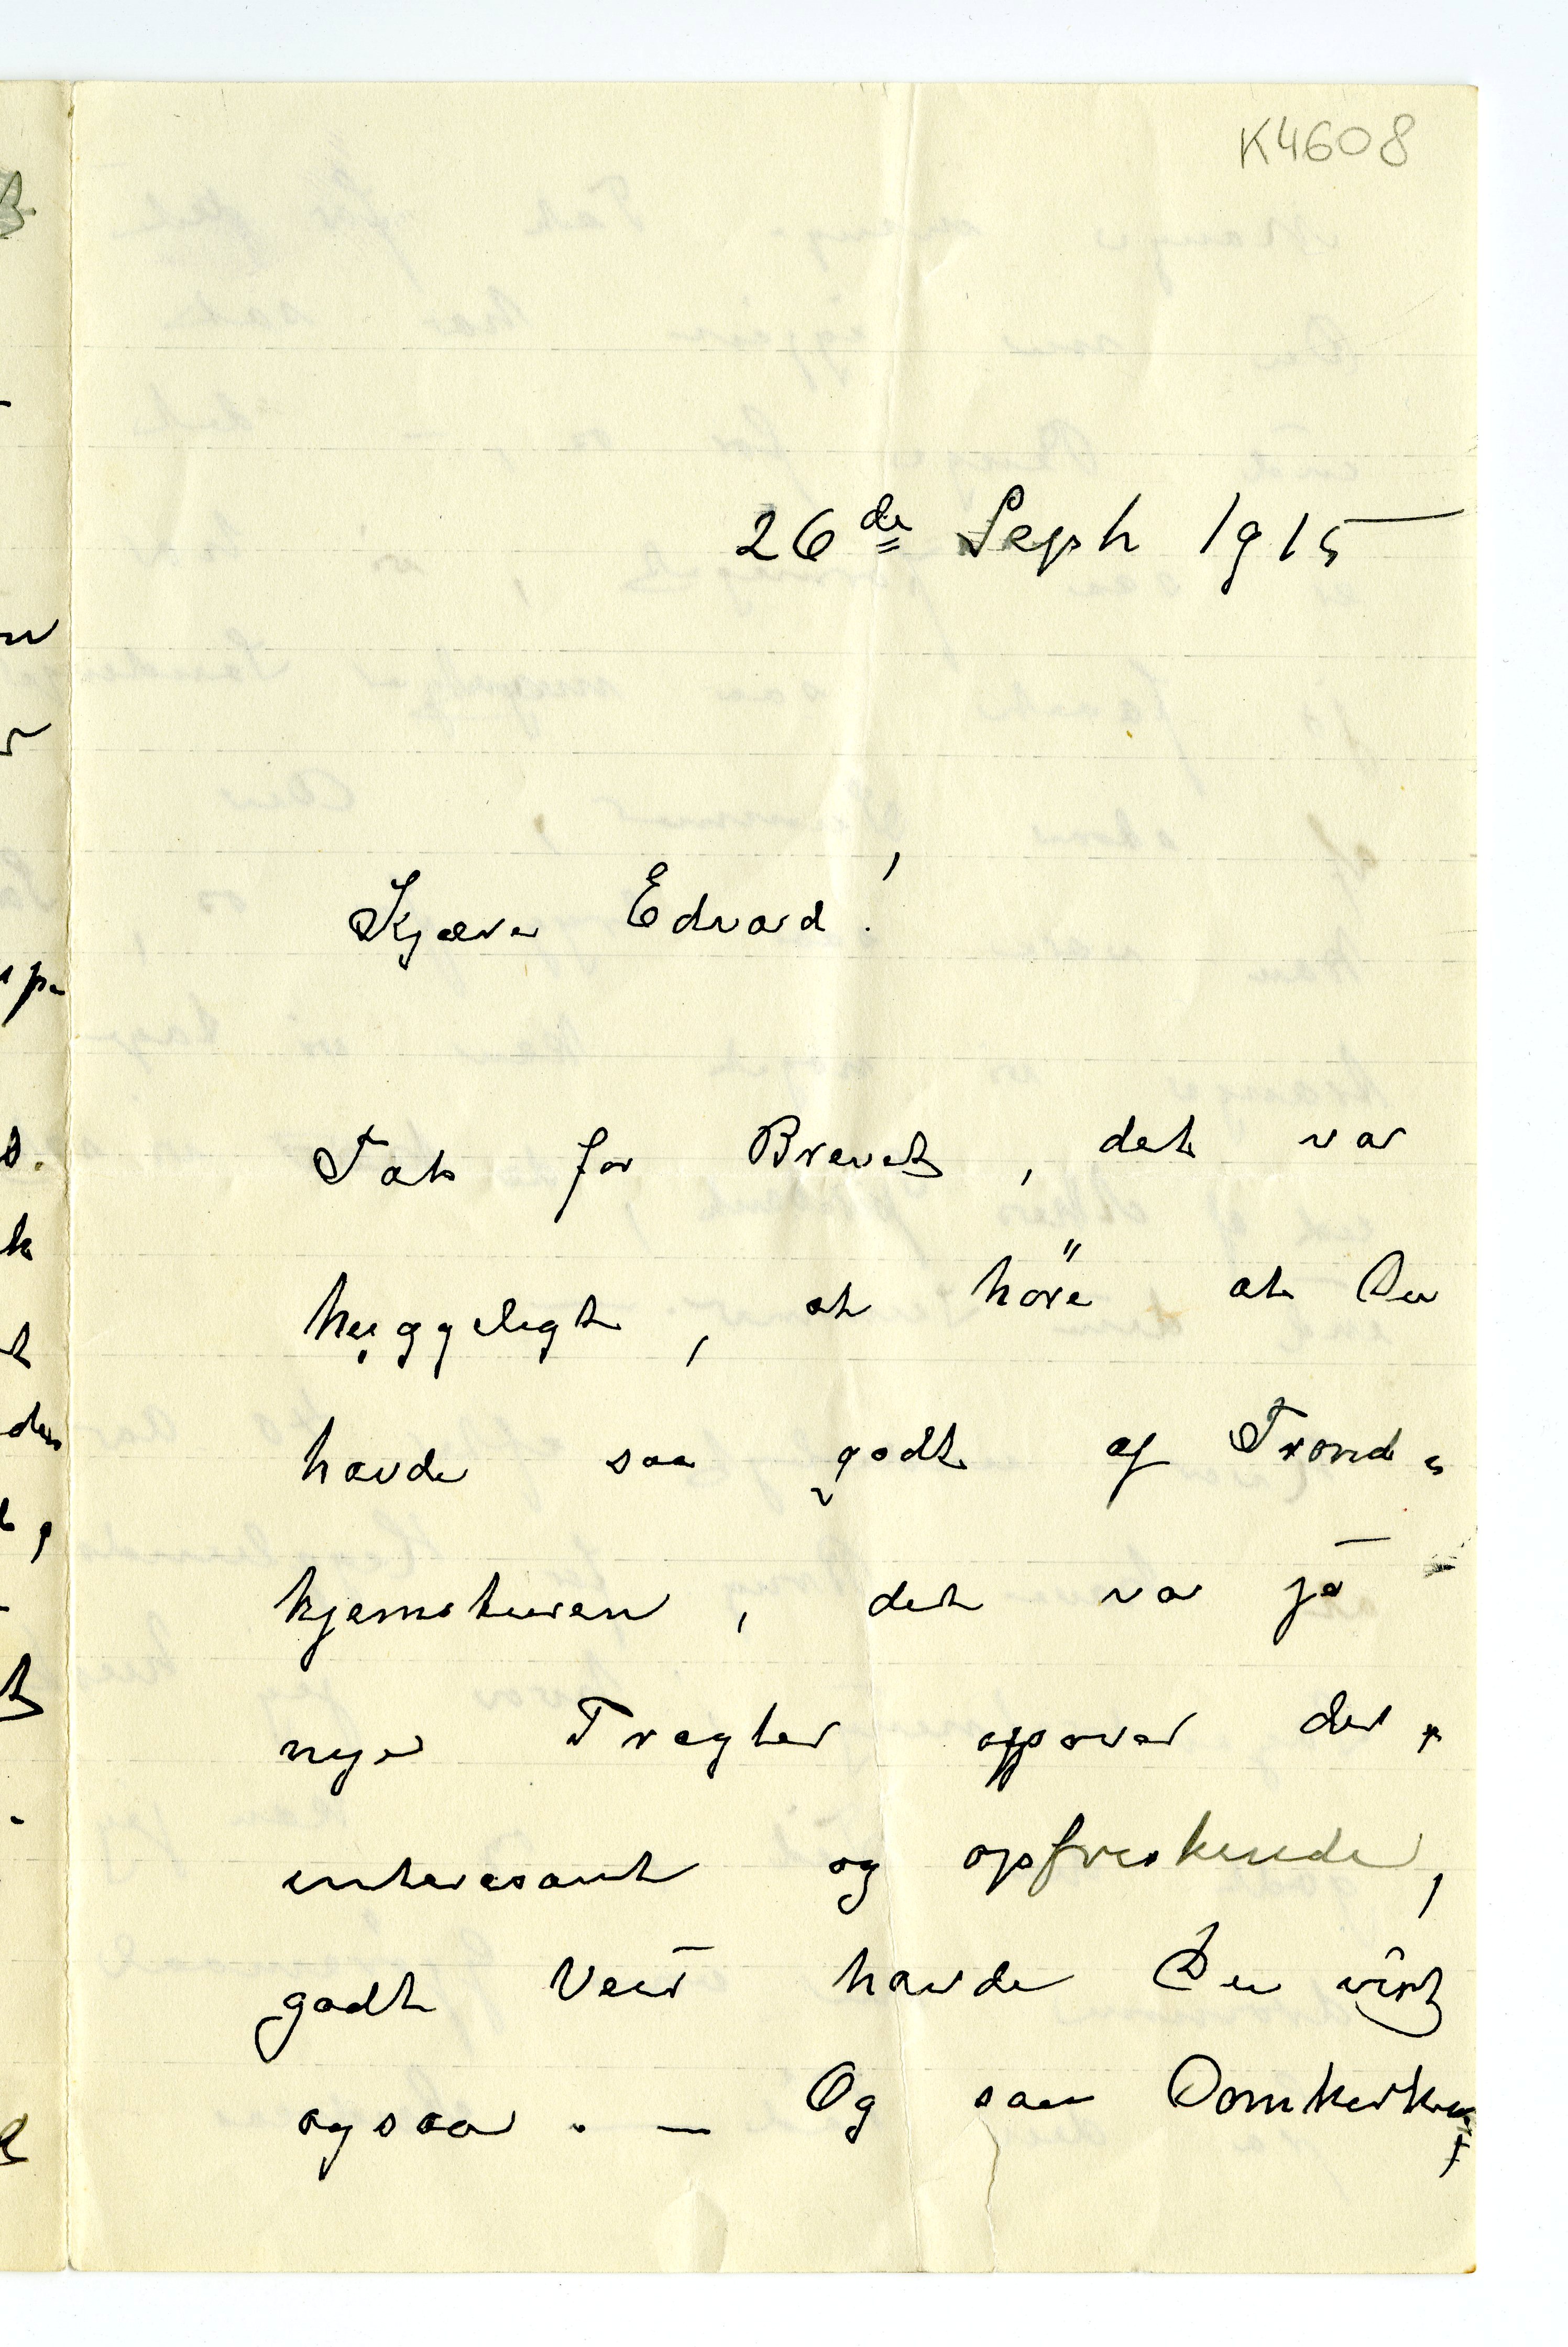 K4608
26de Sept 1915
Kjære Edvard!
Tak for Brevet, det var
hyggeligt, at höre at Du
havde saa godt af Trond-
hjemsturen, det var jo
nye Tragter opover der,
interesant og opfriskende,
godt Veir havde Du vist
ogsaa. — Og saa Domkirken,